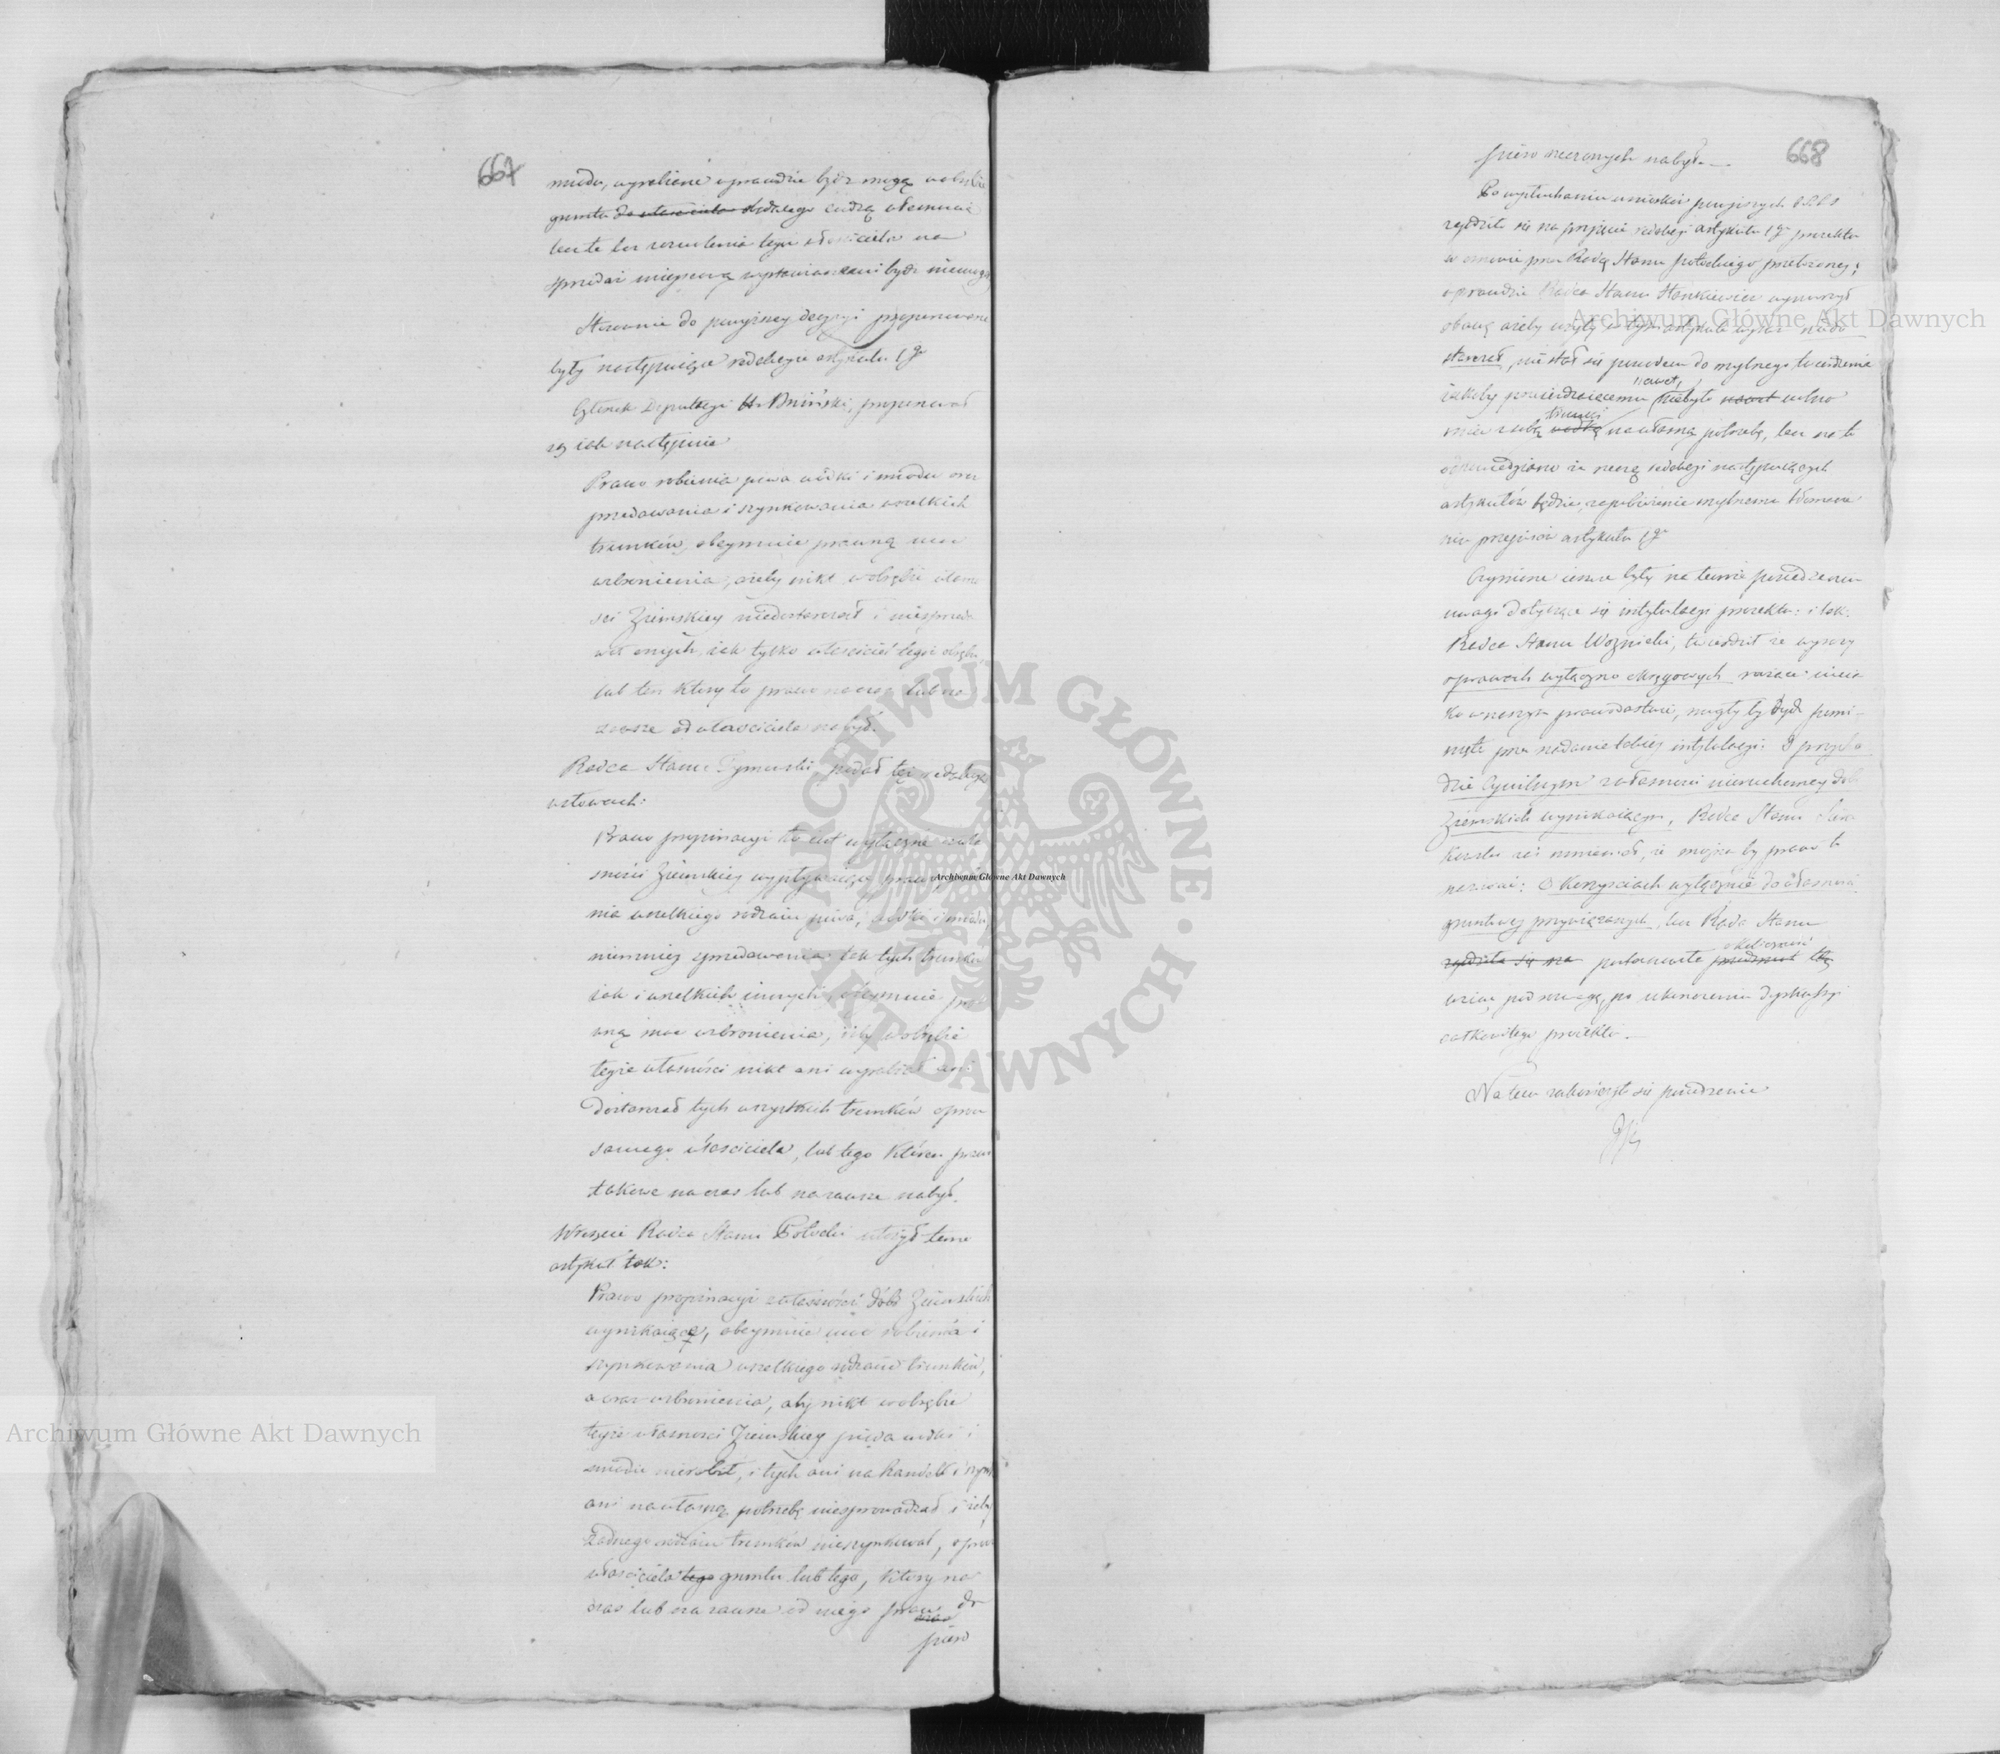 667
miodu, wyrobione wprawdzie bydź mogą w obrębie
gruntu do właściciela każdego cudzą własnością
lecz te bez zezwolenia tegoż właściciela na
sprzedaż mieyscową wystawianemi bydź niemogą
Stosownie do powyższey decyzyi proponowane
były następujące redakcye artykułu 1go
Członek Deputacyi Hr Bniński, proponował
ią iak następuie
Prawo robienia piwa wódki i miodu oraz
przedawania i szynkowania wszelkich
trunków, obeymuie prawną moc
wzbronienia, ażeby nikt w obrębie własno
ści Ziemskiey niedostarczał i niesprzeda
wał onych, iak tylko właściciel tegoż obrębu
lub ten który to prawo na czas lub na
zawsze od właściciela nabył.
Radca Stanu Tymowski podał tę redakcyę
w słowach:
Prawo propinacyi to iest wyłącznie z wła
sności Ziemskiey wypływaiące prawo robie
nia wszelkiego rodzaiu piwa, wódki i miodu
niemniey sprzedawania tak tych trunków
iak i wszelkich innych, obeymuie pra
wną moc wzbronienia, iżby w obrębie
teyże własności nikt ani wyrabiał ani
dostarczał tych wszystkich trunków oprócz
samego właściciela, lub tego który prawo
takowe na czas lub na zawsze nabył.
Wreszcie Radca Stanu Potocki ułożył tenże
artykuł tak:
Prawo propinacyi z własności dóbr Ziemskich
wynikaiące, obeymuie moc robienia i
szynkowania wszelkiego rodzaiu trunków,
a oraz wzbronienia, aby nikt w obrębie
teyże własności Ziemskiey piwa wódki i
miodu nierobił, i tych ani na handel i szynk
ani na własną potrzebę niesprowadzał i żeby
żadnego rodzaiu trunków nieszynkował, oprócz
właściciela tego gruntu lub tego, który na
czas lub na zawsze od niego prawo do
piero
668
piero rzeczonych nabył.
Po wysłuchaniu wniosków powyższych R. S.
zgodziła się na przyjęcie redakcyi artykułu 1go proiektu
w osnowie przez Radcę Stanu Potockiego przełożoney;
wprawdzie Radca Stanu Stankiewicz wynurzył
obawę ażeby użyty w tym artykule wyraz
nie stał się powodem do mylnego twierdzenia
iakoby posiedzicielowi niebyło nawet wolno
mieć u siebie trunki na własną potrzebę, lecz na to
odpowiedziano że rzeczą redakcyi następujących
artykułów będzie, zapobieżenie mylnemu tłomacze
niu przepisów artykułu 1go
Czynione ieszcze były na temże posiedzeniu
uwagi dotyczące się intytulacyi proiektu: i tak:
Radca Stanu Woźnicki, twierdził że wyrazy
o prawach wyłączno okręgowych
ko w naszym prawodawstwie, mogłyby bydź pomi-
nięte przez nadanie takiey intytulacyi: O przycho
dzie Cywilnym z własności nieruchomey dóbr
Ziemskich wynikaiącym, Radca Stanu
zaś mniemał, że możnaby prawo to
nazwać: O korzyściach wyłącznie do własności
gruntowey przywiązanych, lecz Rada Stanu
zgodziła się na postanowiła okoliczność tę
wziąć pod rozwagę, po ukończeniu dyskussyi
całkowitego proiektu.
Na tem zakończyło się posiedzenie
Archiwum Główne Akt Dawnych
Archiwum Główne Akt Dawnych
Archiwum Główne Akt Dawnych
ARCHIWUM GŁÓWNE · AKT DAWNYCH ·